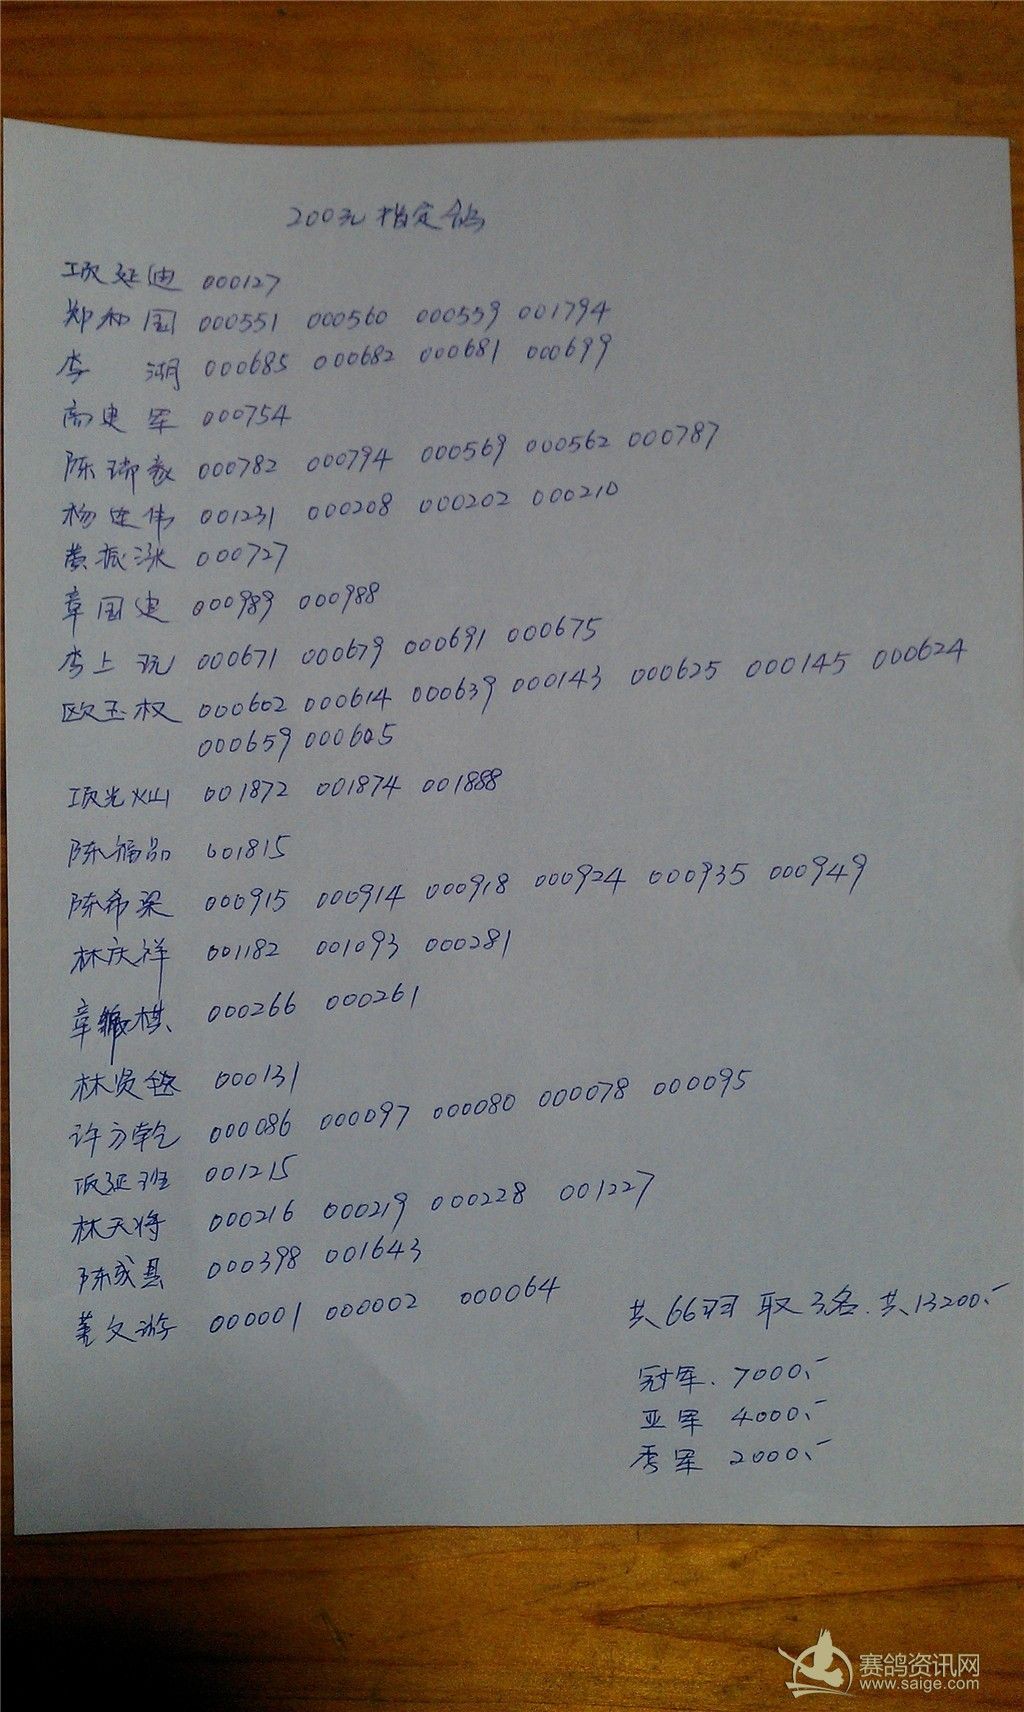 200元指定鸽
项延迪 000127
郑和国 000551 000560 000559 001794
李 湖 000685 000682 000681 000699
高建军 000754
陈瑞毅 000782 000794 000569 000562 000787
杨建伟 001231 000208 000202 000210
黄振泳 000727
章国建 000989 000988
李上玩 000671 000679 000691 000675
欧玉权 000602 000614 000639 000143 000625 000145 000624
000659 000605
项光灿 001872 001874 001888
陈福品 001815
陈希梁 000915 000914 000918 000924 000935 000949
林庆祥 001182 001093 000281
章 棋 000266 000261
林贤 000131
许方乾 000086 000097 000080 000078 000095
项延班 001215
林天将 000216 000219 000228 001227
陈成县 000398 001643
文游 000001 000002 000064
共66羽 取3名.共13200.-
冠军. 7000.-
亚军 4000.-
秀军 2000.-
赛鸽资讯网
www.saige.com